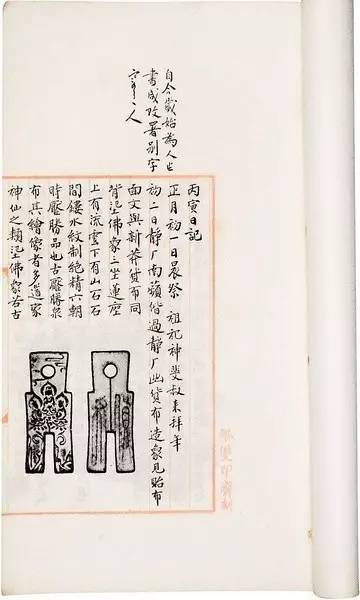 自今歲始為人
書成改署別字
人
丙寅日記
正月初一日晨祭 祖祀神斐叔來拜年
初二日靜厂南嶺偕過靜厂出貨布造象見貽布
面文與新莽貨布同
背佛象三坐蓮座
上有流雲下有山一石
間鏤水紋制絕精六朝
時壓勝品也古壓勝泉
布其繪像者多道家
神仙之類佛象者古